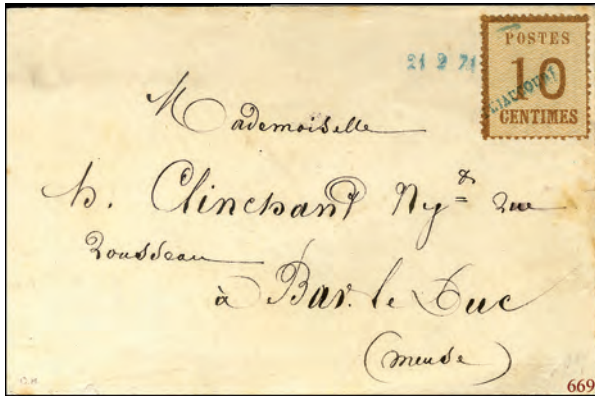 POSTES
10
CENTIMES
21 2 71
Mademoiselle
h. Clinchant Ngte rue
Rousseau
à Bar. le Duc
(meuse)
669